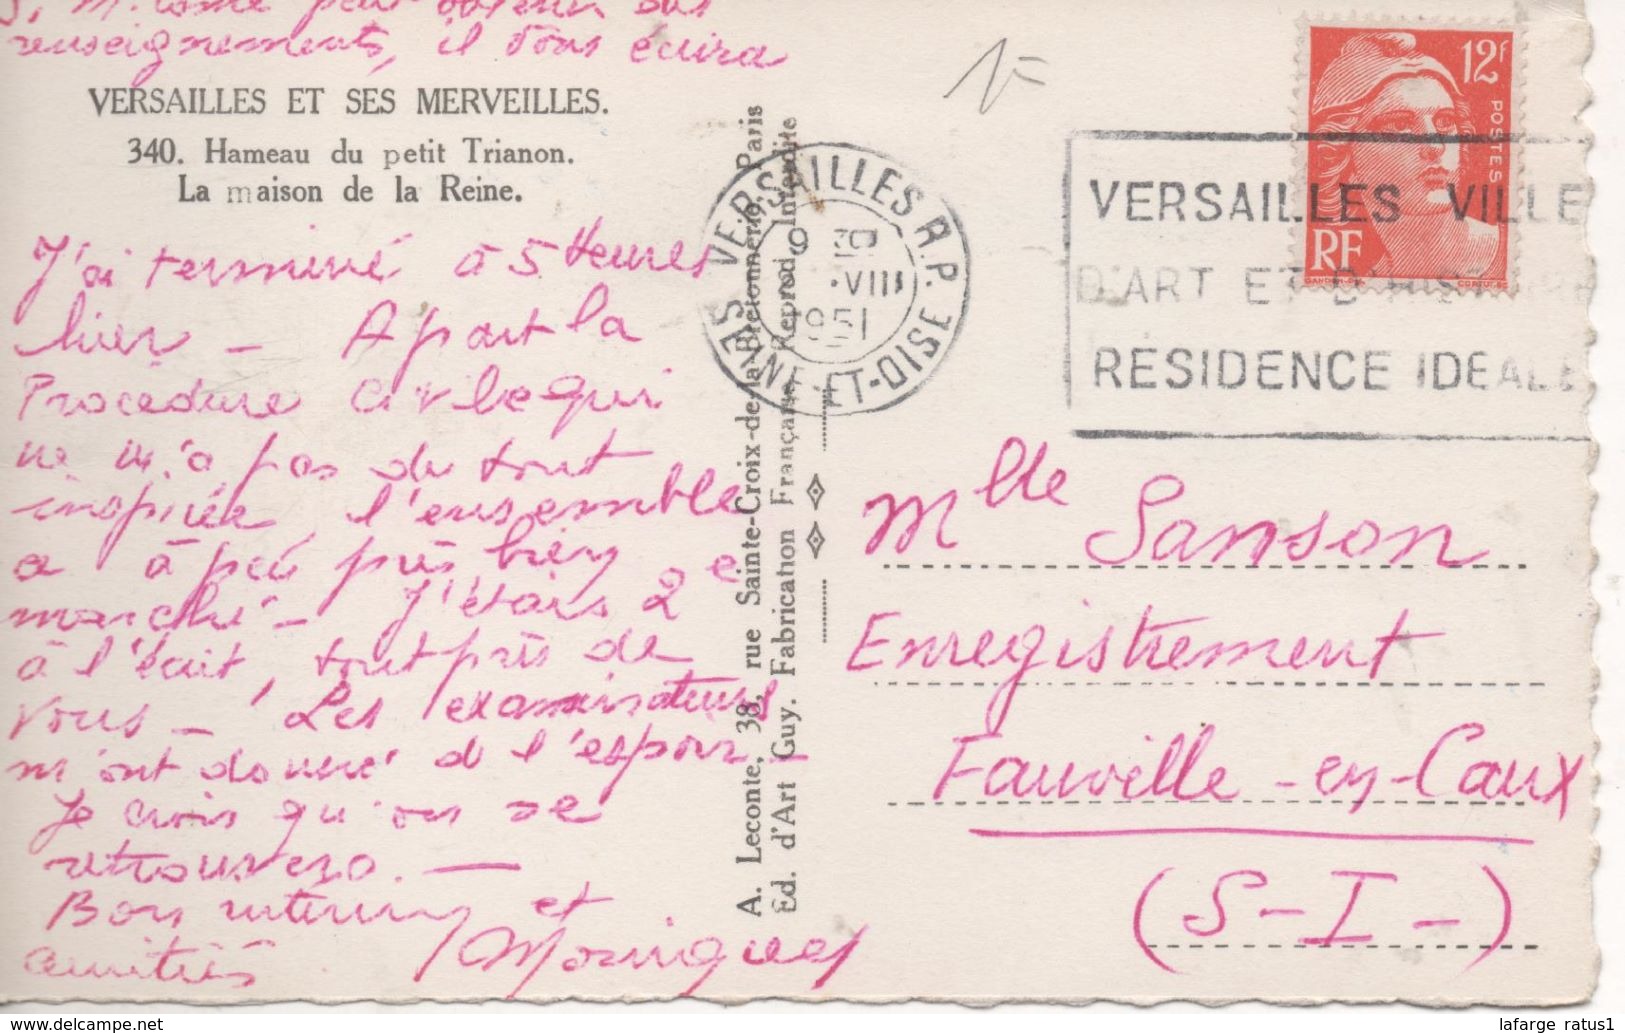 Si M. Come peut obtenir des
renseignements, il vous écrira
VERSAILLES ET SES MERVEILLES.
340. Hameau du petit Trianon.
La maison de la Reine.
J'ai terminé à 5 Heures
hier - A part la
Procédure Civile qui
ne m'a pas du tout
inspirée, l'ensemble
a à peu près bien
marché - J'étais 2e
à l'écrit, tout près de
vous - Les examinateurs
m'ont donné d l'espoir -
Je crois qu'on se
retrouvera. -
Bon interim et
amitiés
A. Leconte, 38, rue Sainte-Croix-de-la-Bretonnerie, Paris
Ed. d'Art Guy. Fabrication Française Reprod. Interdite
VERSAILLES R.P.
9 30
VIII
1951
SEINE-ET-OISE
12f
POSTES
RF
GANDON-DEL.
CORTOT-SC
VERSAILLES VILLE
D'ART ET D'HISTOIRE
RÉSIDENCE IDEALE
Mlle Sanson
Enregistrement
Fauville-en-Caux
(S-I-)
lafarge ratus1